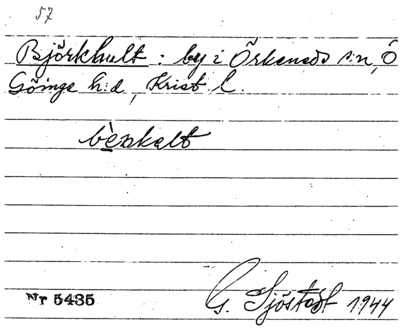 57
Björkhult : by i Örkeneds s:n, Ö
Göinge h:d, Krist l.
bėrkált
Nr 5435
G. Sjöstedt 1944